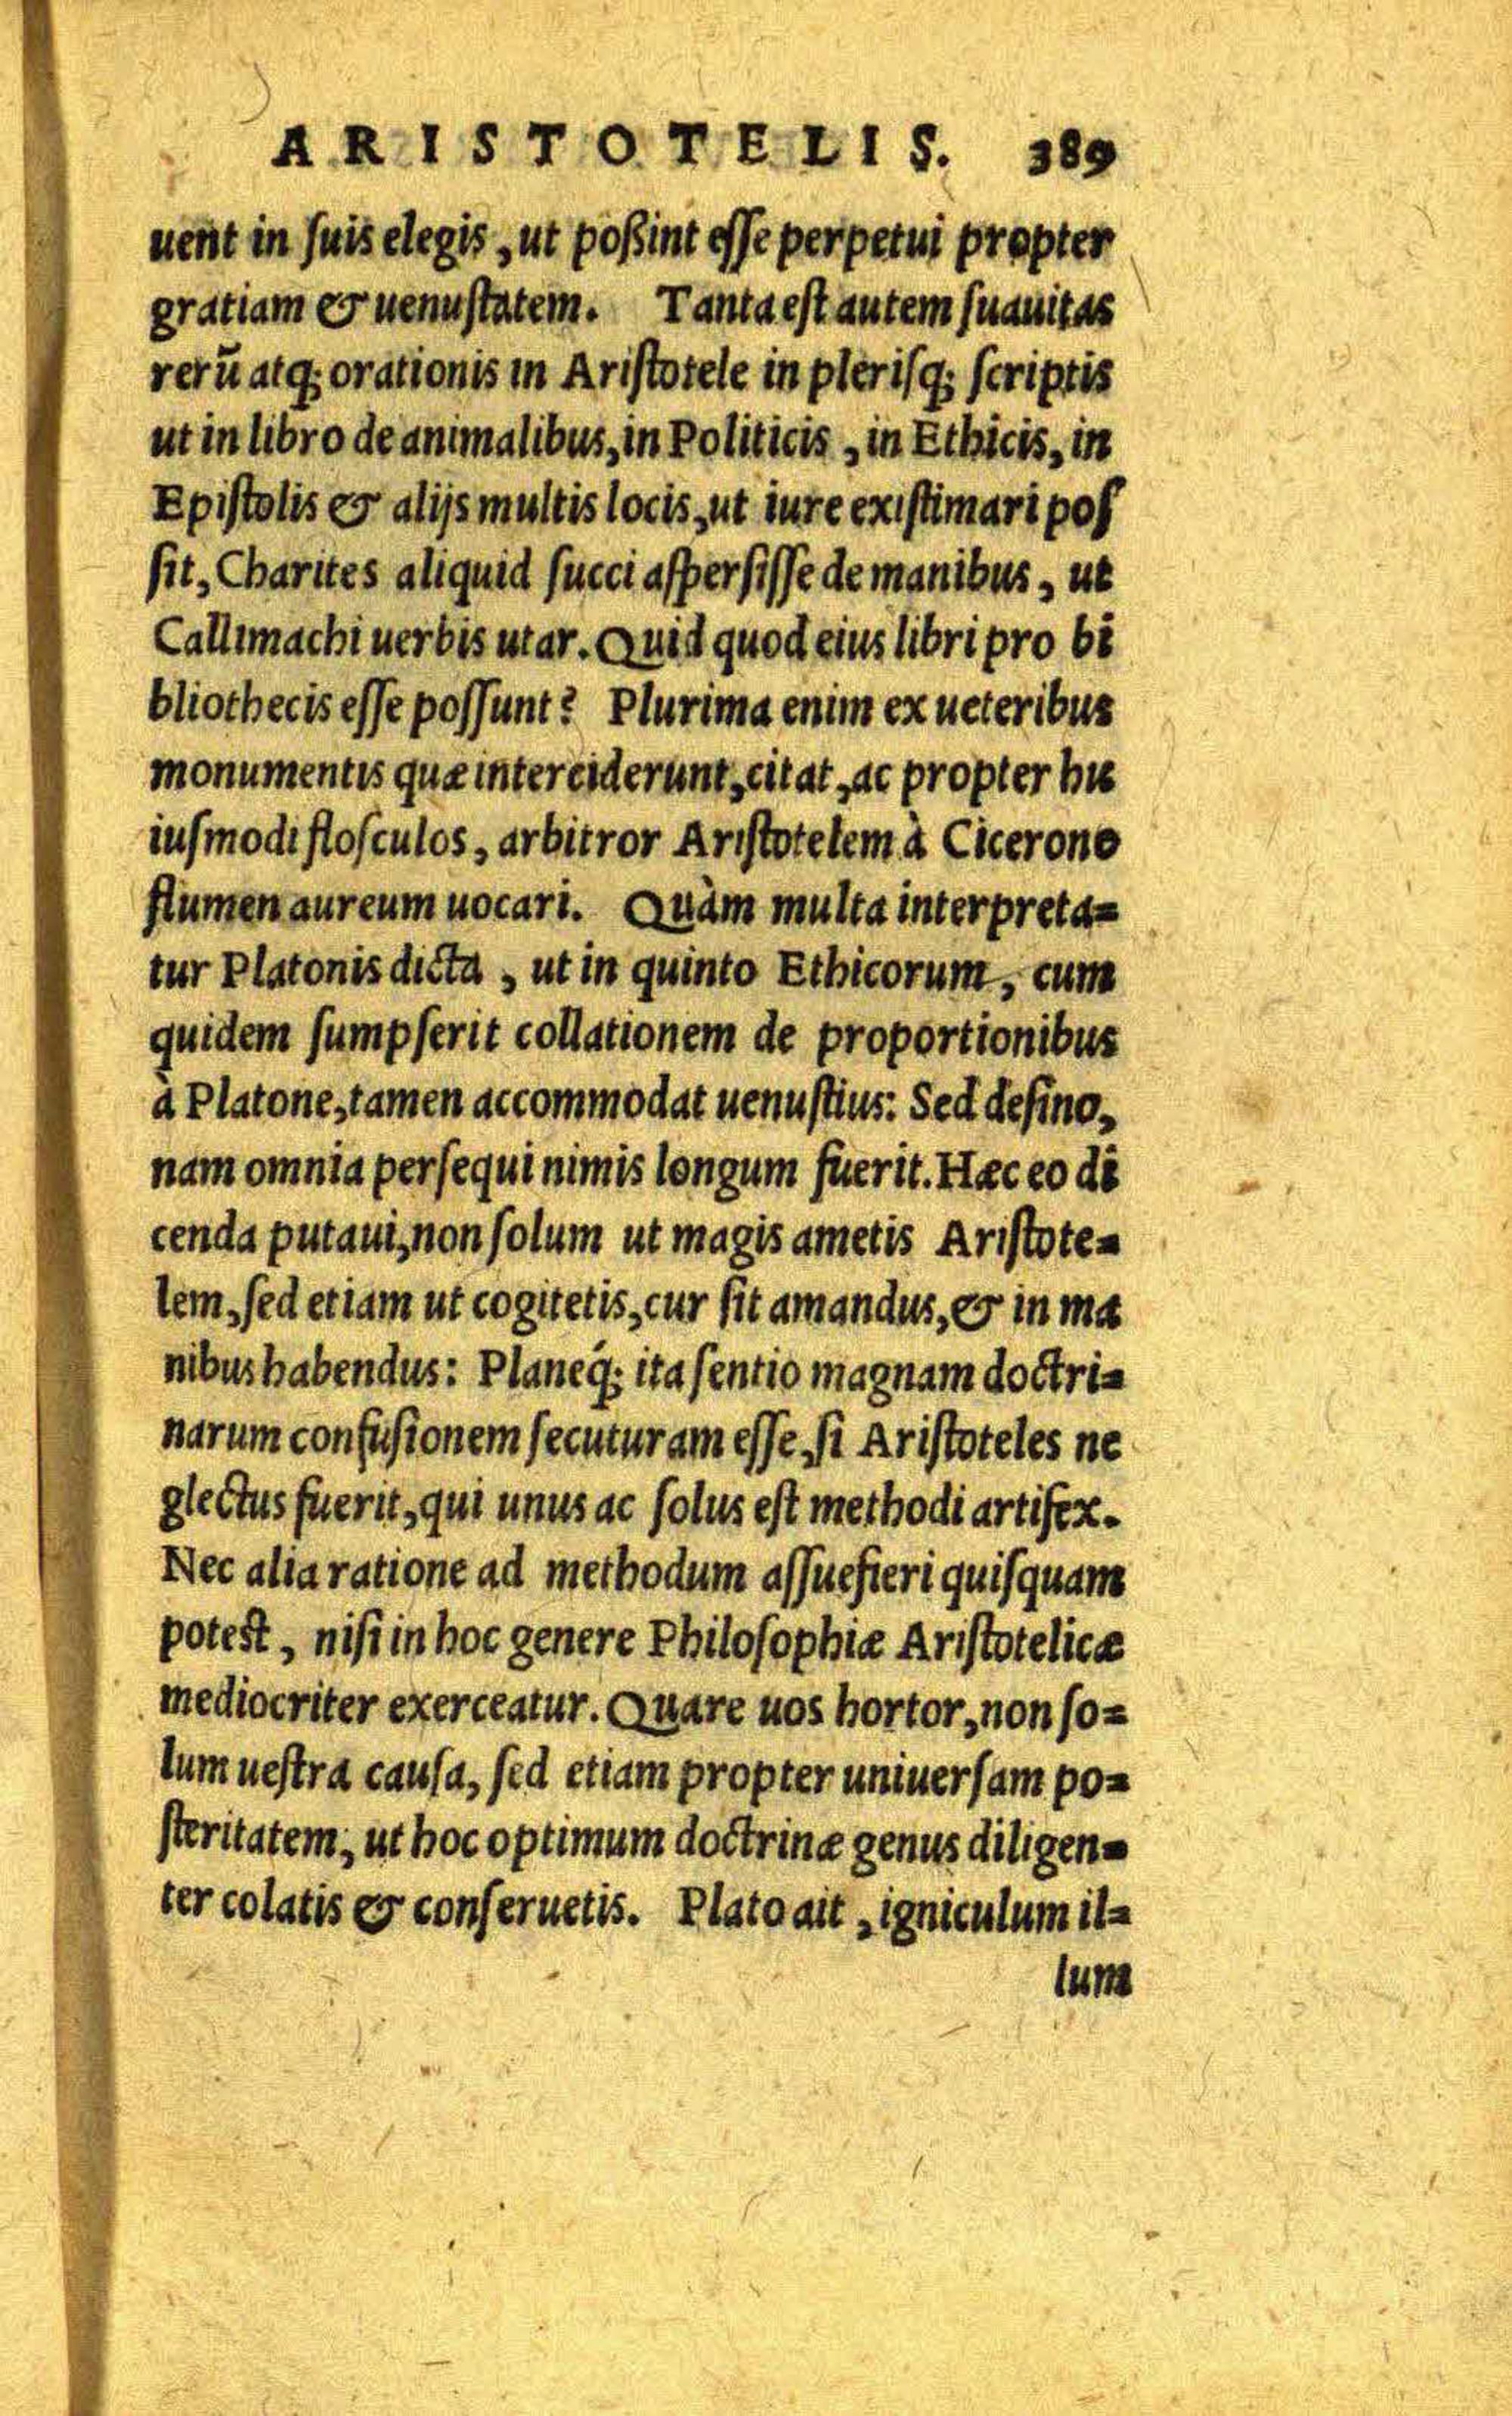 ARISTOTELIS. 389
uent in ſuis elegis, ut poßint eſſe perpetui propter
gratiam & uenuſtatem. Tanta eſt autem ſuauitas
rerū atq; orationis in Ariſtotele in pleriſq; ſcriptis
ut in libro de animalibus, in Politicis, in Ethicis, in
Epiſtolis & alijs multis locis, ut iure exiſtimari poſ
ſit, Charites aliquid ſucci aſperſiſſe de manibus, ut
Callimachi uerbis utar. Quid quod eius libri pro bi
bliothecis eſſe poſſunt? Plurima enim ex ueteribus
monumentis quæ interciderunt, citat, ac propter hu
iuſmodi floſculos, arbitror Ariſtotelem à Cicerone
flumen aureum uocari. Quàm multa interpreta=
tur Platonis dicta, ut in quinto Ethicorum, cum
quidem ſumpſerit collationem de proportionibus
à Platone, tamen accommodat uenuſtius: Sed deſino,
nam omnia perſequi nimis longum fuerit. Hæc eo di
cenda putaui, non ſolum ut magis ametis Ariſtote=
lem, ſed etiam ut cogitetis, cur ſit amandus, & in ma
nibus habendus: Planeq́; ita ſentio magnam doctri=
narum confuſionem ſecuturam eſſe, ſi Ariſtoteles ne
glectus fuerit, qui unus ac ſolus eſt methodi artifex.
Nec alia ratione ad methodum aſſuefieri quiſquam
poteſt, niſi in hoc genere Philoſophiæ Ariſtotelicæ
mediocriter exerceatur. Quare uos hortor, non ſo=
lum ueſtra cauſa, ſed etiam propter uniuerſam po=
ſteritatem, ut hoc optimum doctrinæ genus diligen=
ter colatis & conſeruetis. Plato ait, igniculum il=
lum